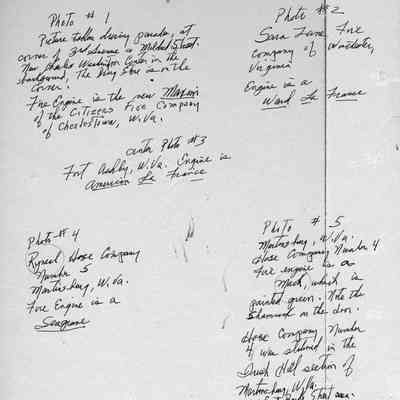 Photo # 1
Picture taken during parade, at
corner of 3rd Avenue & Mildred Street.
New Charles Washington Center in the
background. The Key Store is on the
Corner.
Fire Engine is the new Maxim
of the Citizens Fire Company
of Charlestown, W.Va.
Photo #2
Sara Zane Fire
Company of Winchester,
Virginia
Engine is a
Ward La France
Photo #3
Fort Ashby, W.Va. Engine is
American La France
Photo # 4
Hose Company
Number 5
Martinsburg, W.Va.
Fire Engine is a
Seagrave
Photo # 5
Martinsburg, W.Va.
Hose Company Number 4
Fire engine is a
Mack, which is
painted green. Note the
Shamrock on the door.
Hose Company Number
4 was stationed in the
Irish Hill section of
Martinsburg, W.Va.